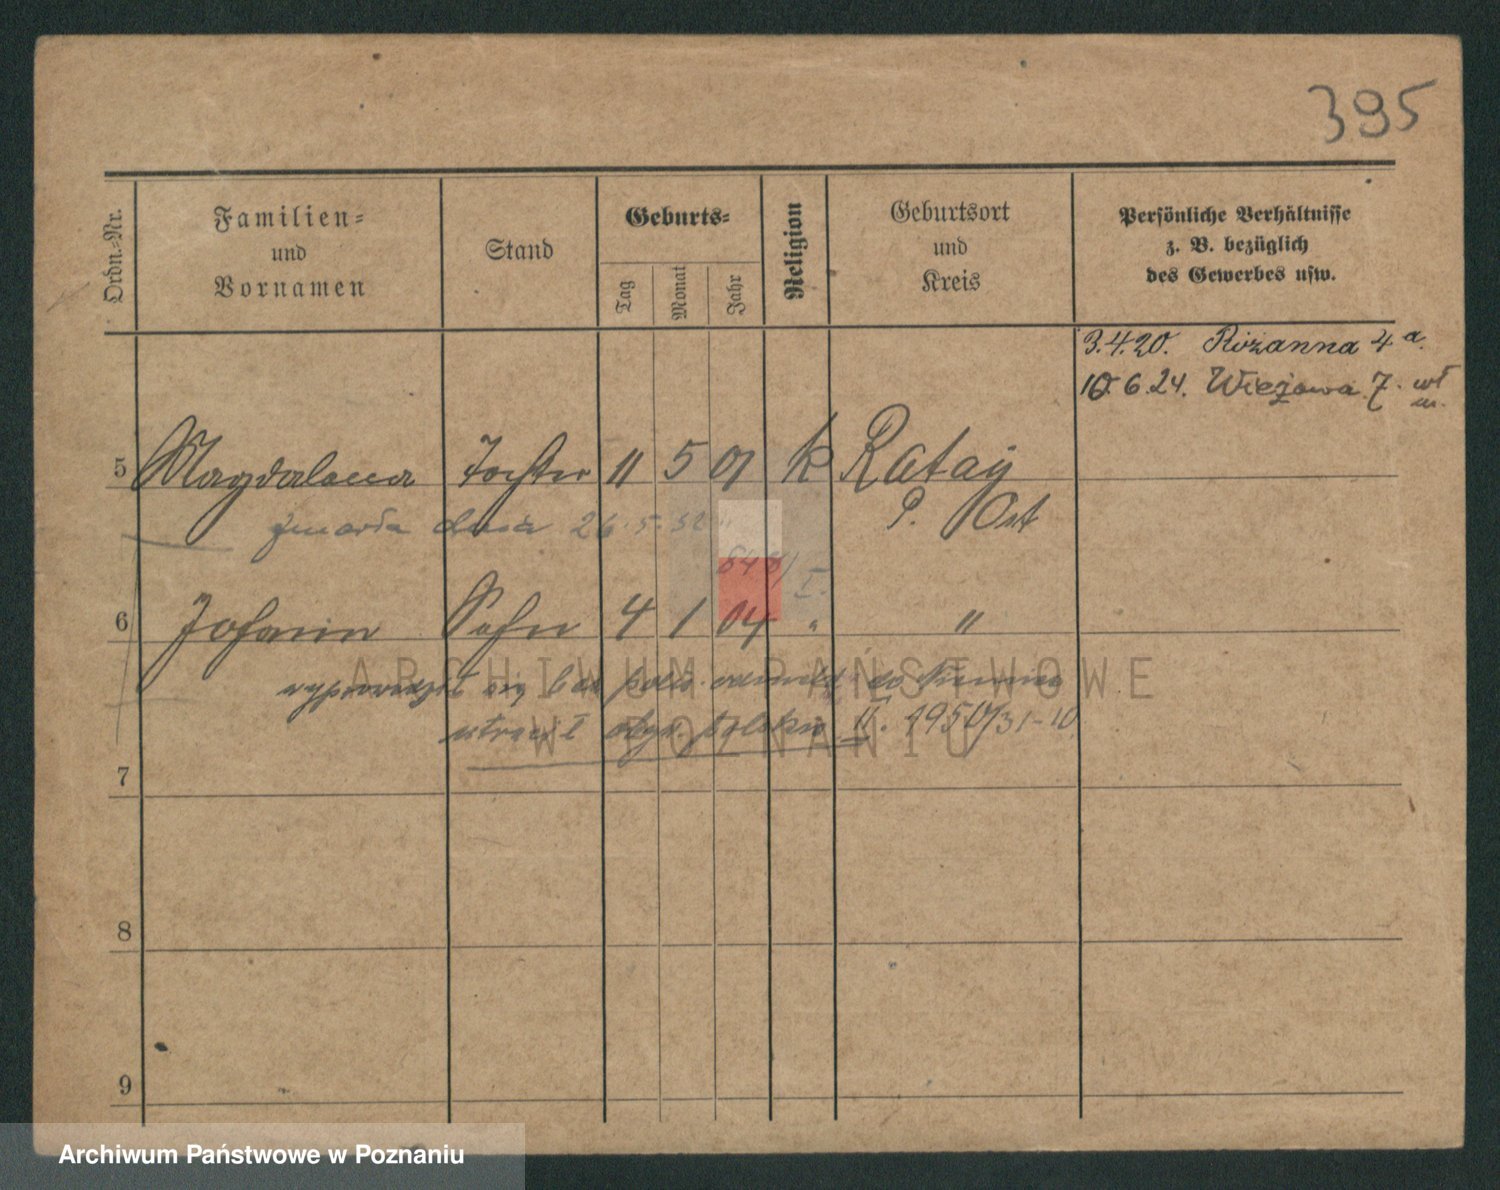 395
Ordn.-Nr.
Familien-
und
Vornamen
Stand
Geburts-
Tag
Monat
Jahr
Religion
Geburtsort
und
Kreis
Persönliche Verhältnisse
z. B. bezüglich
des Gewerbes usw.
3.4.20. Różanna 4 a.
10.6.24. Wieżowa 7. wł
m.
5 Magdalena Tochter 11 5 01 k Rataj
P. Ost
zmarła dnia 26.5.32
848/I.
6 Johann Sohn 4 1 04 " "
się do Niemiec
utracił obyw. polskie II. 1950/31-10
7
8
9
ARCHIWUM PAŃSTWOWE
W POZNANIU
Archiwum Państwowe w Poznaniu